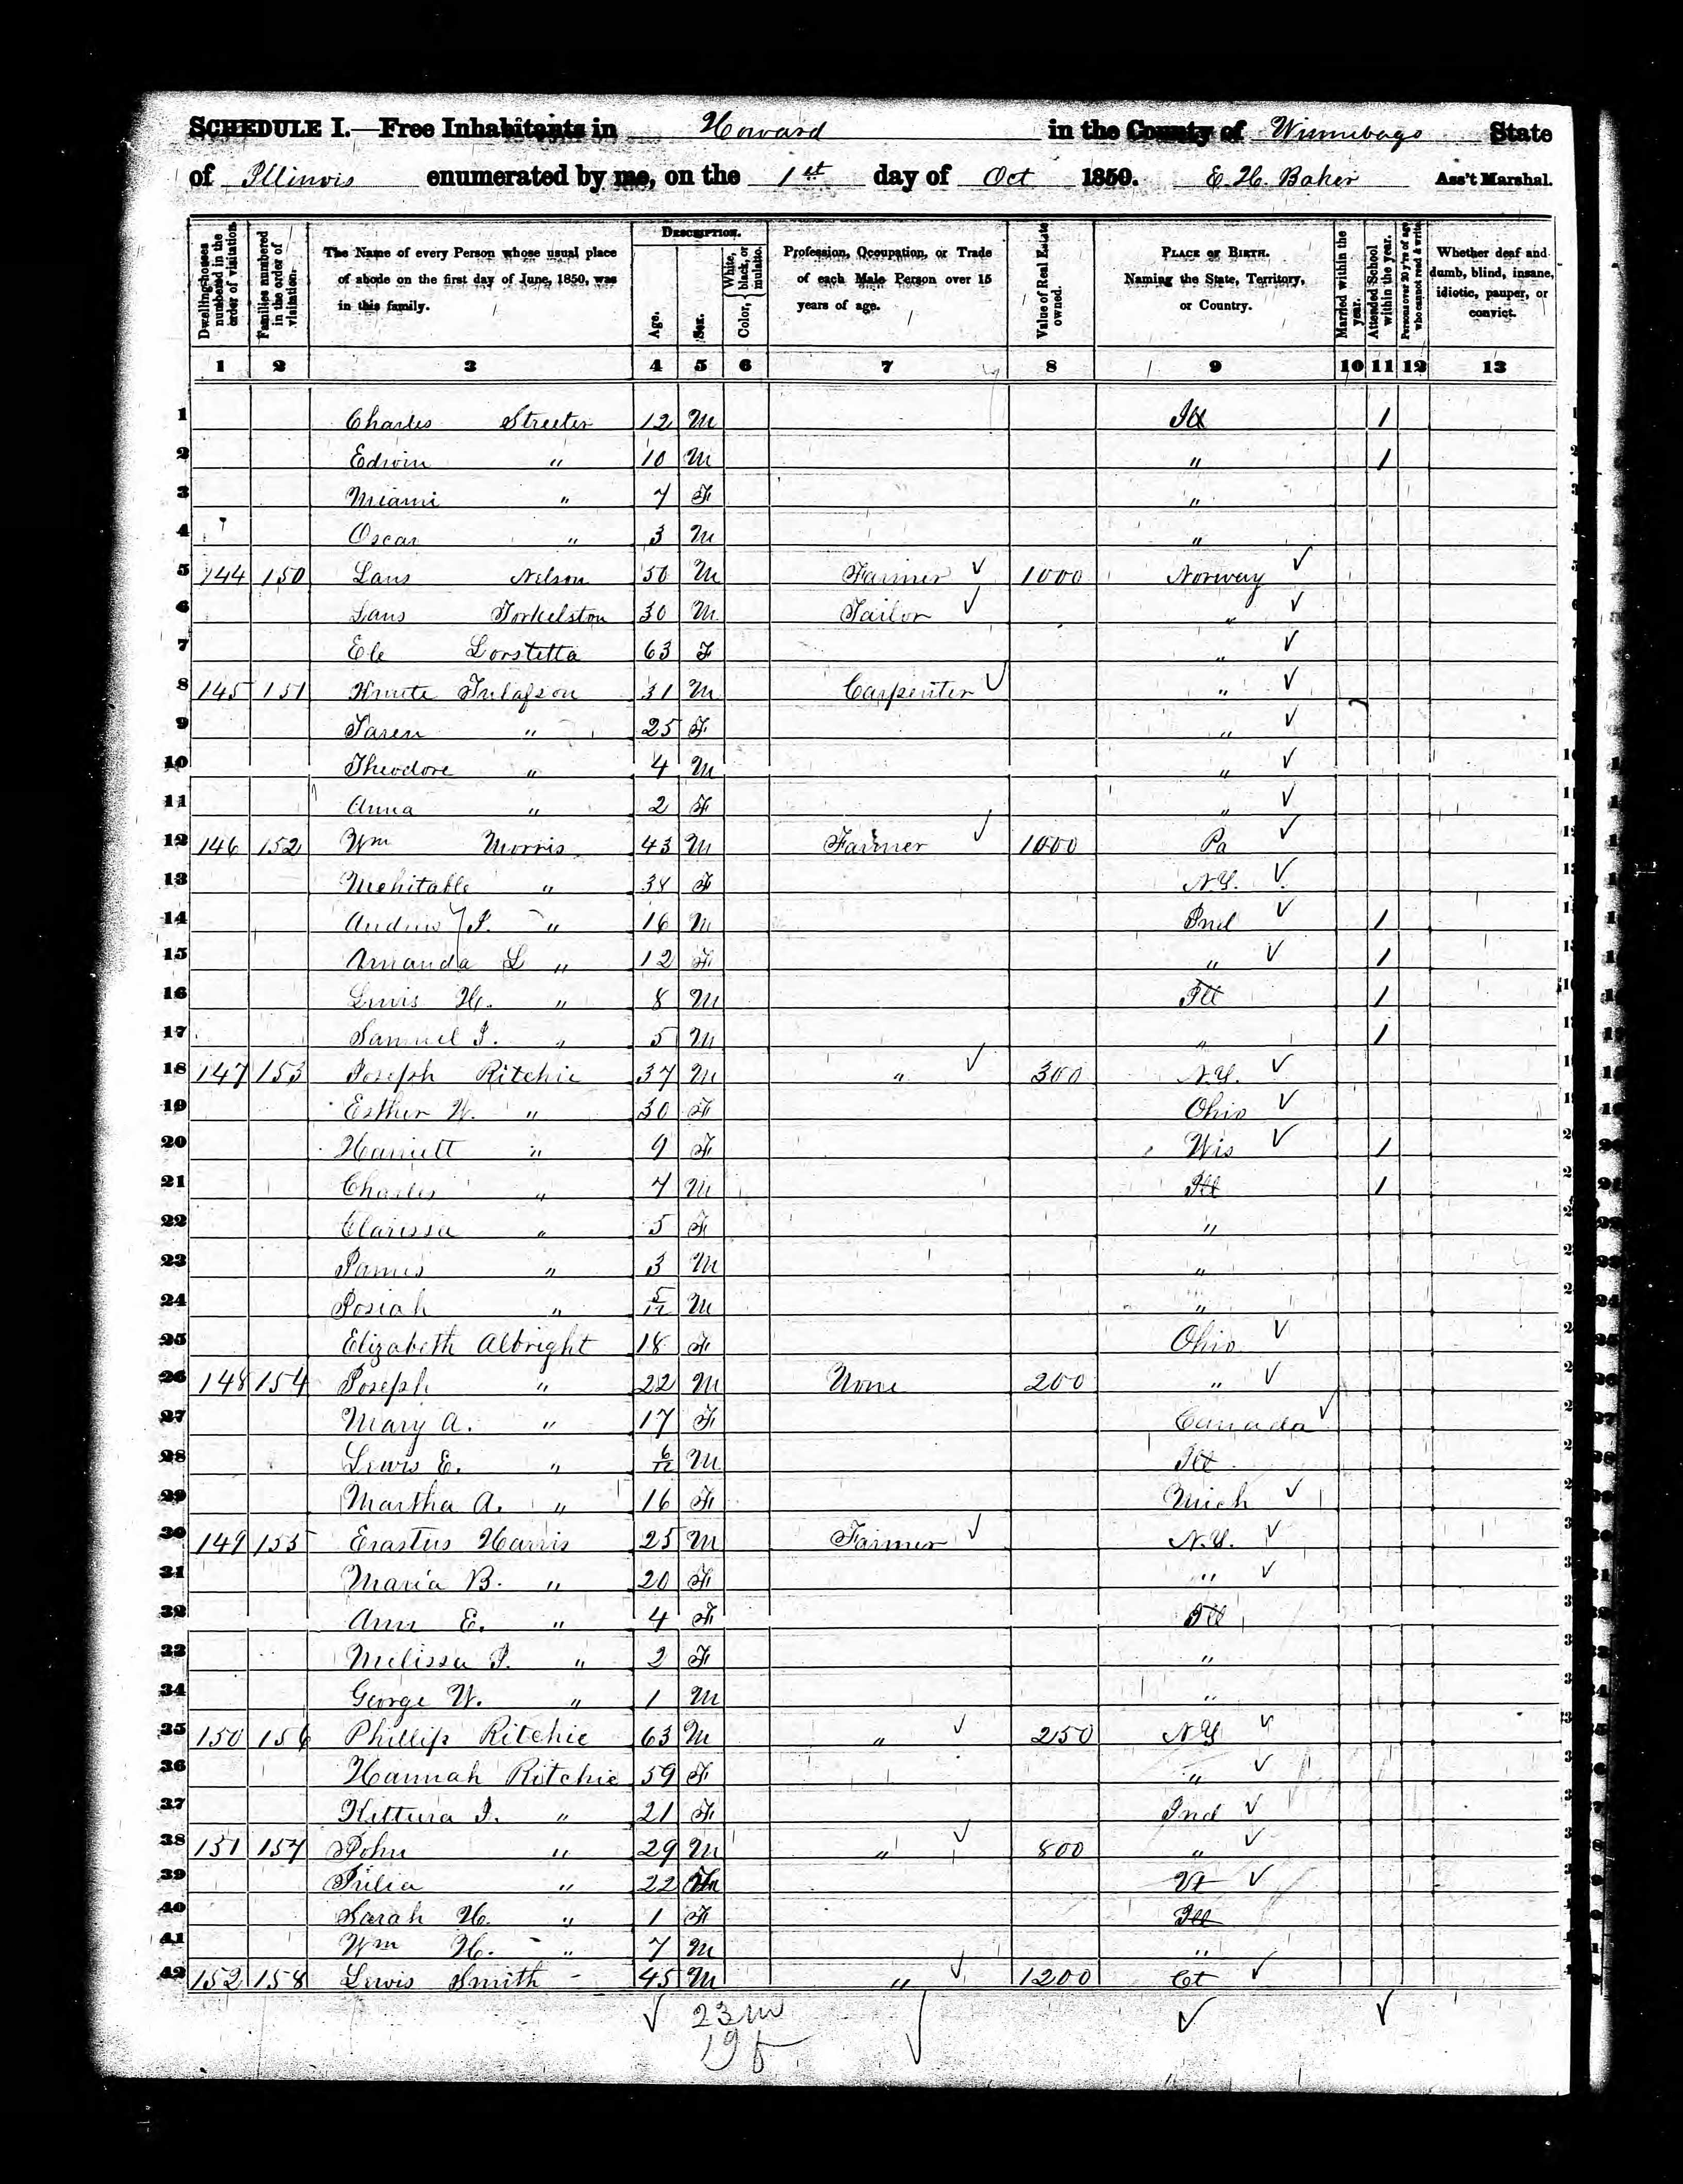 SCHEDULE I.—Free Inhabitants in Howard in the County of Winnebago State
of Illinois enumerated by me, on the 1st day of Oct 1850. E. H. Baker Ass't Marshal.
Dwelling-houses numbered in the order of visitation.
Families numbered in the order of visitation.
The Name of every Person whose usual place of abode on the first day of June, 1850, was in this family.
DESCRIPTION.
Age.
Sex.
Color, { White, black, or mulatto.
Profession, Occupation, or Trade of each Male Person over 15 years of age.
Value of Real Estate owned.
PLACE OF BIRTH. Naming the State, Territory, or Country.
Married within the year.
Attended School within the year.
Persons over 20 y'rs of age who cannot read & write.
Whether deaf and dumb, blind, insane, idiotic, pauper, or convict.
1 2 3 4 5 6 7 8 9 10 11 12 13
1 Charles Streeter 12 M Ill 1
2 Edwin " 10 M " 1
3 Miami " 7 F "
4 Oscar " 3 M "
5 144 150 Lars Nelson 50 M Farmer ✓ 1000 Norway ✓
6 Lars Torkelston 30 M Tailor ✓ " ✓
7 Ele 63 F " ✓
8 145 151 Knute 31 M Carpenter ✓ " ✓
9 Taren " 25 F " ✓
10 Theodore " 4 M " ✓
11 Anna " 2 F " ✓
12 146 152 Wm Morris 43 M Farmer ✓ 1000 Pa ✓
13 Mehitable " 34 F N.Y. ✓
14 Andrew J. " 16 M Ind ✓ 1
15 Amanda L " 12 F " ✓ 1
16 Lewis H. " 8 M Ill 1
17 Samuel J. " 5 M " 1
18 147 153 Joseph Ritchie 37 M " ✓ 300 N.Y. ✓
19 Esther W. " 30 F Ohio ✓
20 Harriett " 9 F Wis ✓ 1
21 Charles " 7 M Ill 1
22 Clarissa " 5 F "
23 James " 3 M "
24 Josiah " 5/12 M "
25 Elizabeth Albright 18 F Ohio ✓
26 148 154 Joseph " 22 M None 200 " ✓
27 Mary A. " 17 F Canada ✓
28 Lewis E. " 6/12 M Ill
29 Martha A. " 16 F Mich ✓
30 149 155 Erastus Harris 25 M Farmer ✓ N.Y. ✓
31 Maria B. " 20 F " ✓
32 Ann E. " 4 F Ill
33 Melissa J. " 2 F "
34 George W. " 1 M "
35 150 156 Phillip Ritchie 63 M " ✓ 250 N.Y ✓
36 Hannah Ritchie 59 F " ✓
37 Kittura J. " 21 F Ind ✓
38 151 157 John " 29 M " ✓ 800 " ✓
39 Julia " 22 F Vt ✓
40 Sarah H. " 1 F Ill
41 Wm H. " 7 M "
42 152 158 Lewis Smith 45 M " ✓ 1200 Ct ✓
✓ 23 m ✓ ✓ ✓
19 f